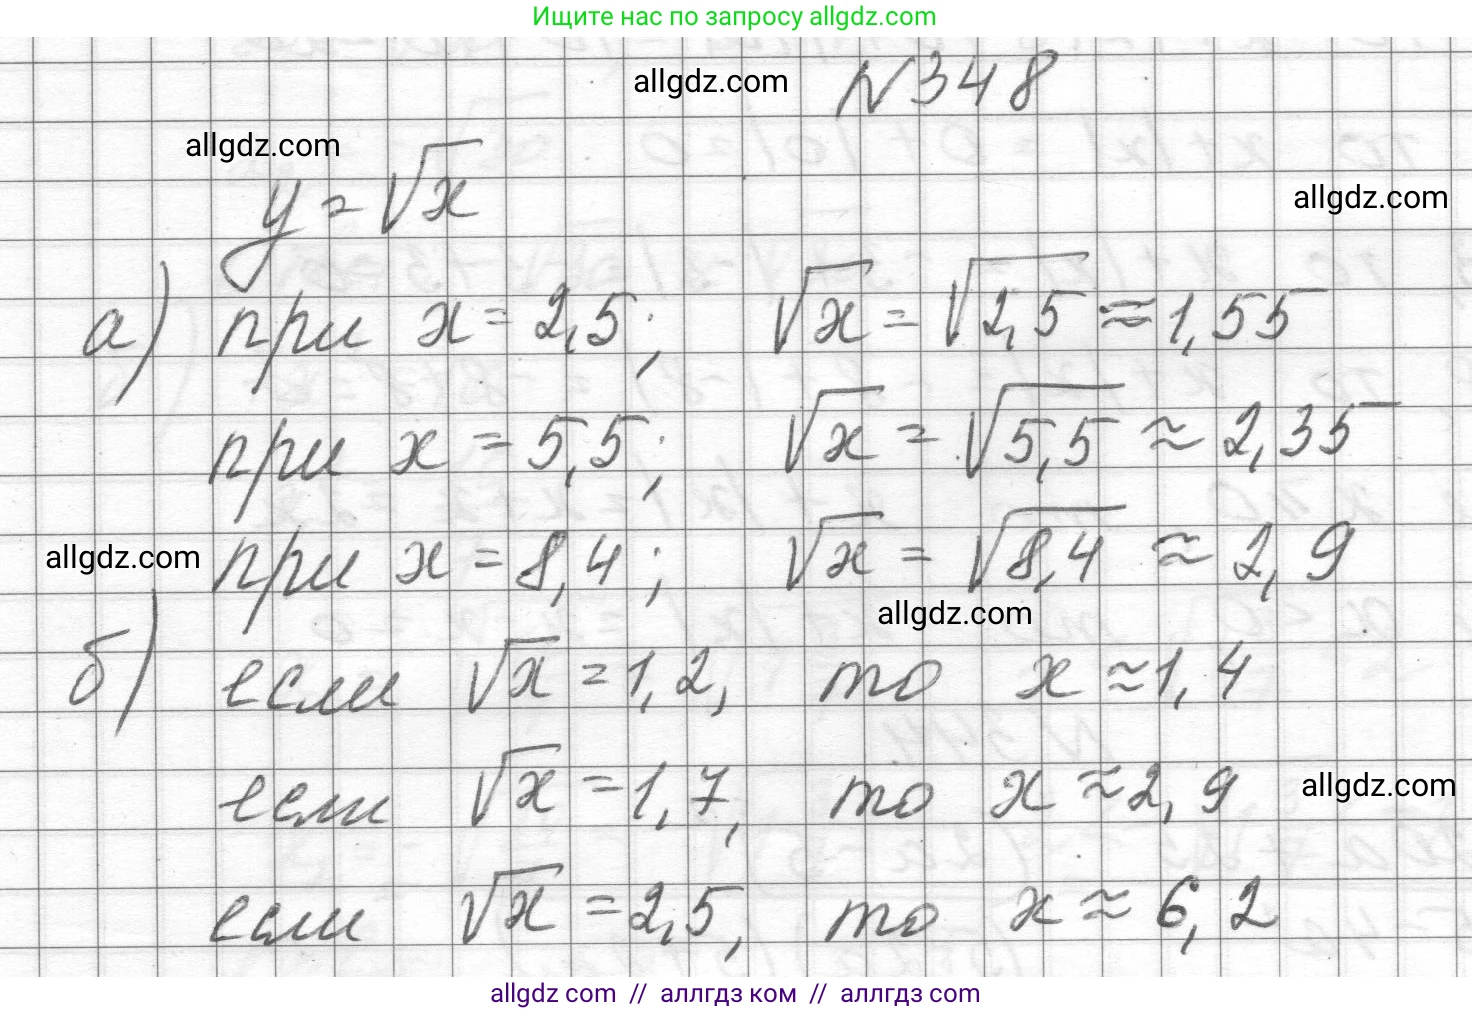 Ищите нас по запросу allgdz.com
allgdz.com N 348
allgdz.com
y = √x
allgdz.com
а) при x = 2,5; √x = √2,5 ≈ 1,55
при x = 5,5; √x = √5,5 ≈ 2,35
allgdz.com при x = 8,4; √x = √8,4 ≈ 2,9
allgdz.com
б) если √x = 1,2, то x ≈ 1,4
если √x = 1,7, то x ≈ 2,9 allgdz.com
если √x = 2,5, то x ≈ 6,2
allgdz com // аллгдз ком // аллгдз com